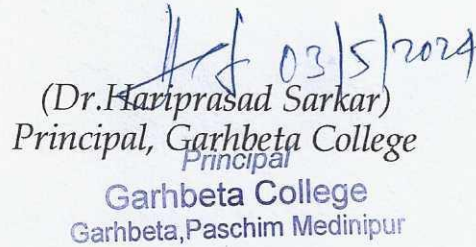 03/5/2024
(Dr.Hariprasad Sarkar)
Principal, Garhbeta College
Principal
Garhbeta College
Garhbeta,Paschim Medinipur